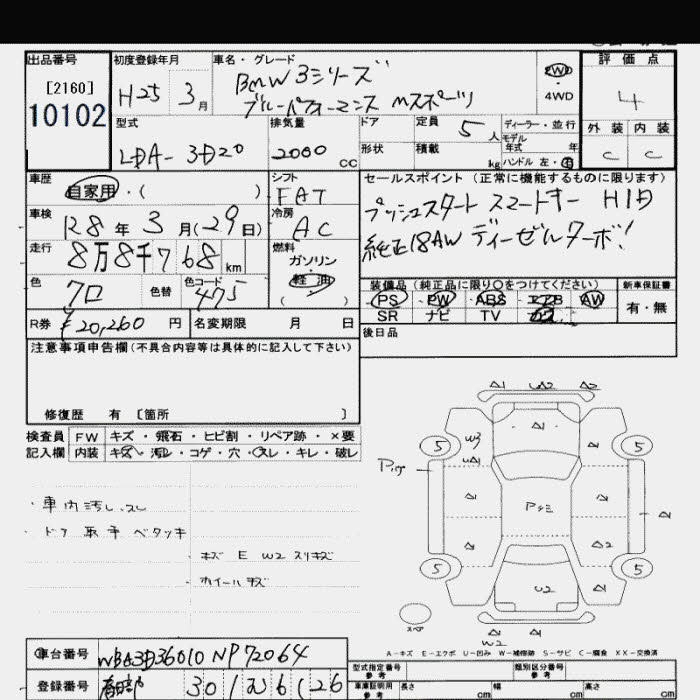 出品番号
[2160]
10102
初度登録年月
H25 3月
車名・グレード
BMW 3シリーズ
ブルーパフォーマンス Mスポーツ
2WD
4WD
評価点
4
外装 内装
C C
型式
LDA-3D20
排気量
2000 CC
ドア
形状
定員 5人
積載 kg
ディーラー・並行
モデル
年式 年
ハンドル 左・右
車歴
自家用・( )
シフト
FAT
車検
R8年3月(29日)
冷房
AC
走行
8万8千768km
燃料
ガソリン
軽油
( )
色
クロ
色替
色コード
475
R券 ¥20,260円
名変期限 月 日
セールスポイント(正常に機能するものに限ります)
プッシュスタート スマートキー HID
純正18AW ディーゼルターボ!
装備品(純正品に限り○をつけてください)
PS PW ABS エアB AW
SR ナビ TV
新車保証書
有・無
後日品
注意事項申告欄(不具合内容等は具体的に記入して下さい)
修復歴 有 [箇所 ]
検査員 FW キズ・飛石・ヒビ割・リペア跡・×要
記入欄 内装 キズ・汚レ・コゲ・穴・スレ・キレ・破レ
・車内汚し、スレ
・ドア取手ベタツキ
・キズ E W2 スリキズ
・ホイールキズ
A1 W2 A2
A1
5 5
W3
A1
A1 A1
A1 A1
A2
5 5
W2
A1 A1
W2
A-キズ E-エクボ U-凹み W-補修跡 S-サビ C-腐食 XX-交換済
車台番号 WBA3D36010NP72064
登録番号 春日部 301
型式指定番号
参考
類別区分番号
参考
車庫証明用
参考
長さ cm
幅 cm
高さ cm